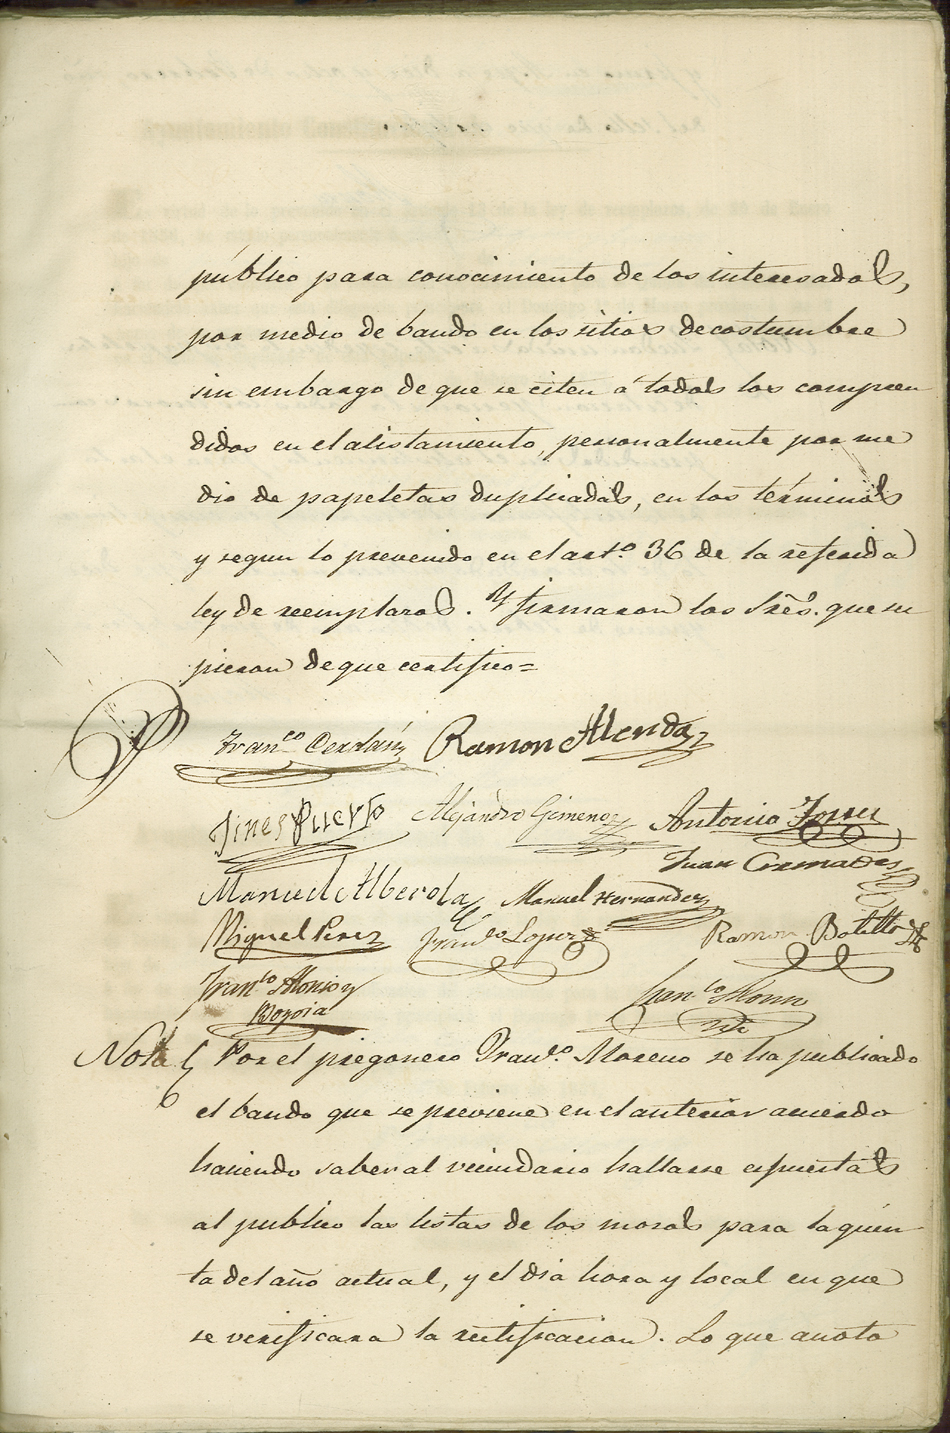 público para conocimiento de los interesados,
por medio de bando en los sitios de costumbre
sin embargo de que se citen á todos los compren
didos en el alistamiento, personalmente por me
dio de papeletas duplicadas, en los términos
y segun lo prevenido en el art.º 36 de la referida
ley de reemplazos. Y firmaron los Sres. que su
pieron de que certifico=
Fran.co Cerdán Ramon Alenda
Jines Puerto Alejandro Gimenez Antonio Torres
Juan Cremades
Manuel Alberola Manuel Hernandez
Miguel Perez Fran.co Lopez Ramon Botella
Fran.co Alonso y
Fran.co
Nota Por el pregonero Fran.co Moreno se ha publicado
el bando que se previene en el anterior acuerdo
haciendo saber al vecindario hallarse espuestas
al publico las listas de los mosos para la quin
ta del año actual, y el dia hora y local en que
se verificara la rectificacion. Lo que anoto